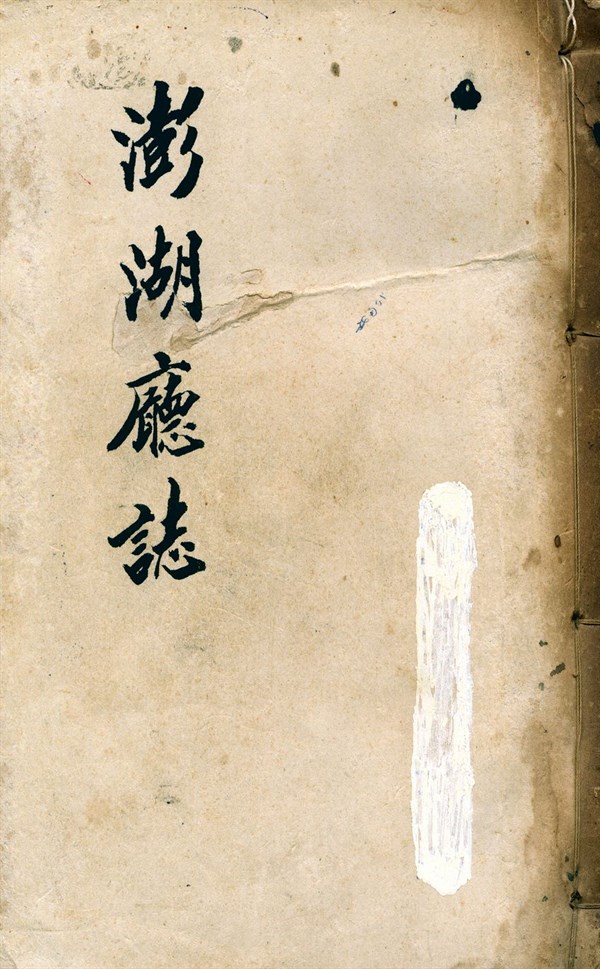 澎湖廳誌